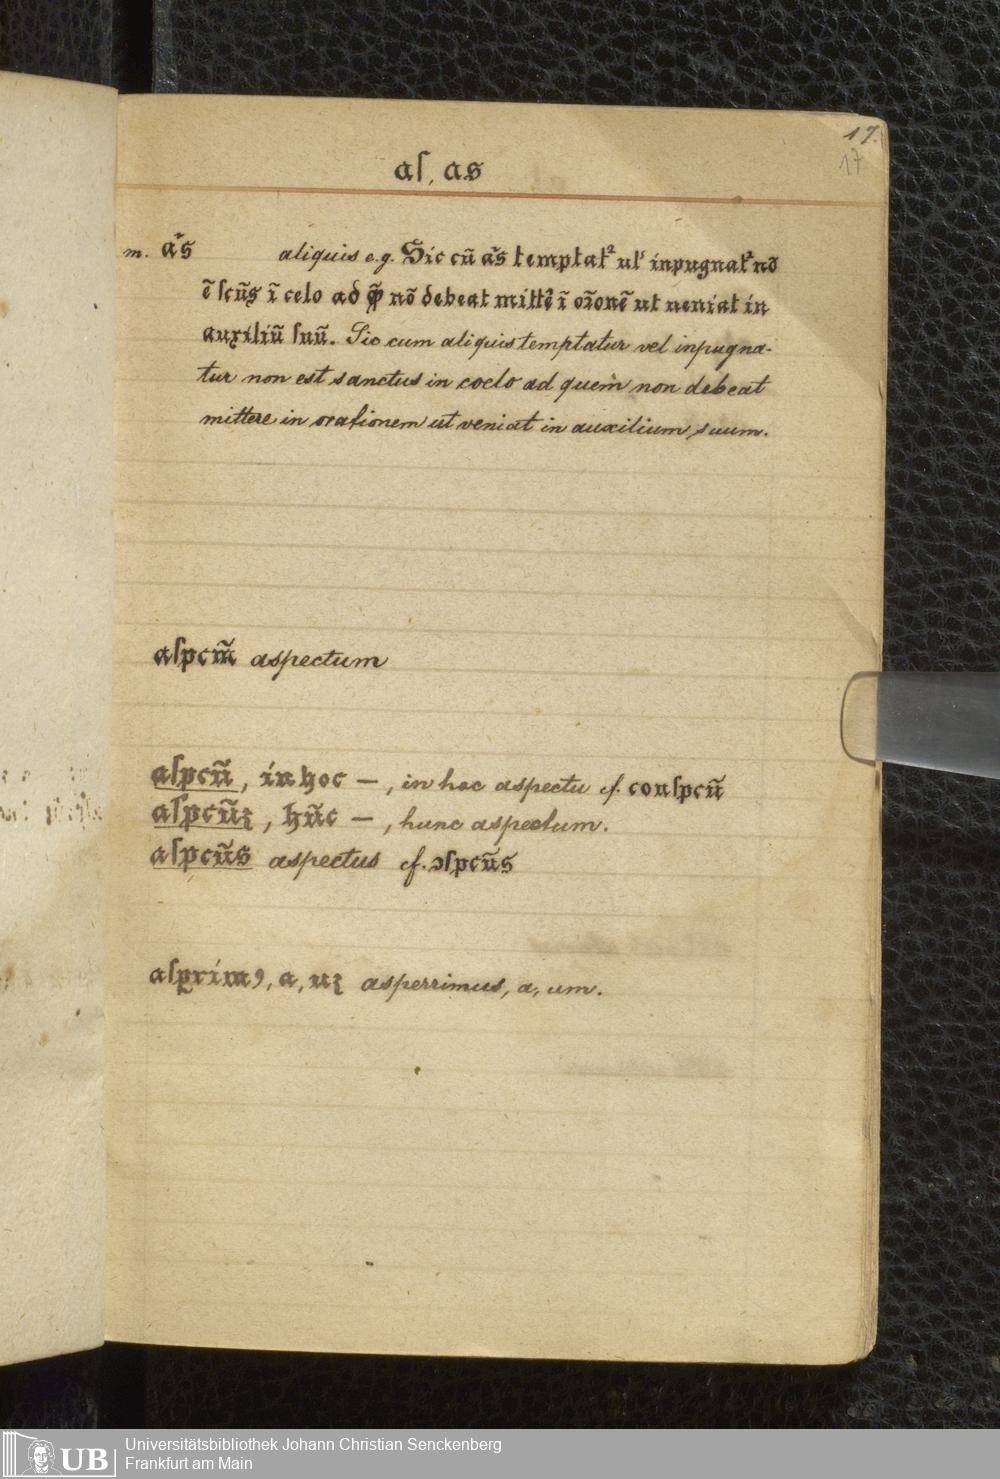 17.
17
aſ, as
m. as̃ aliquis e.g. Sic cũ as̃ temptat² ul' inpugnat² nõ
ẽ ſcũs ĩ celo ad q̃ nõ debeat mittẽ ĩ oĩonẽ ut ueniat in
auxiliũ ſuũ. Sic cum aliquis temptatur vel inpugna-
tur non est sanctus in coelo ad quem non debeat
mittere in orationem ut veniat in auxilium suum.
aſpcm̃ aspectum
aſpcũ, in hoc —, in hoc aspectu cf. conſpcũ
aſpcũꝫ, hũc —, hunc aspectum.
aſpcũs aspectus cf. ɔſpcũs
aſꝑrimꝯ, a, uꝫ asperrimus, a, um.
UB Universitätsbibliothek Johann Christian Senckenberg
Frankfurt am Main